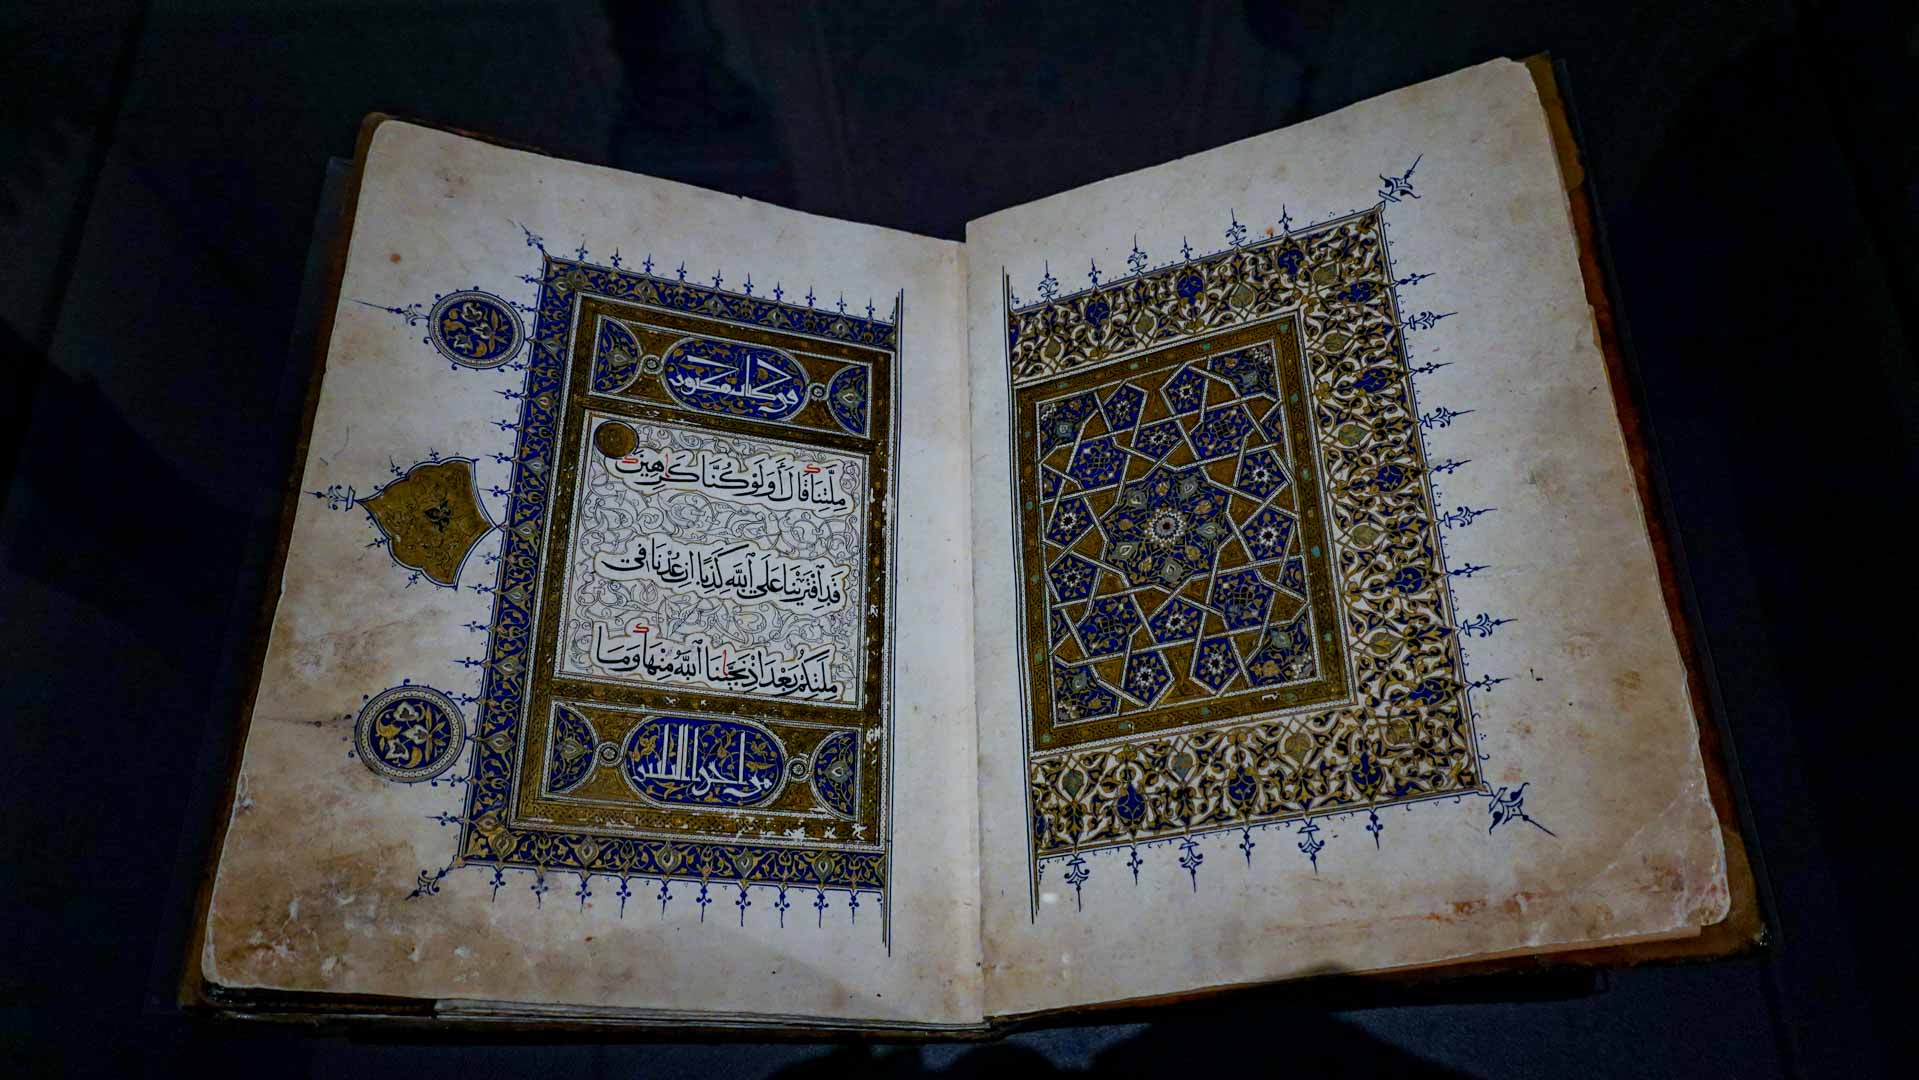 في كتاب مكنون
مِلَّتِنَا قَالَ أَوَلَوْ كُنَّا كَٰرِهِينَ
قَدِ ٱفْتَرَيْنَا عَلَى ٱللَّهِ كَذِبًا إِنْ عُدْنَا فِى
مِلَّتِكُم بَعْدَ إِذْ نَجَّىٰنَا ٱللَّهُ مِنْهَا وَمَا
من اجزا